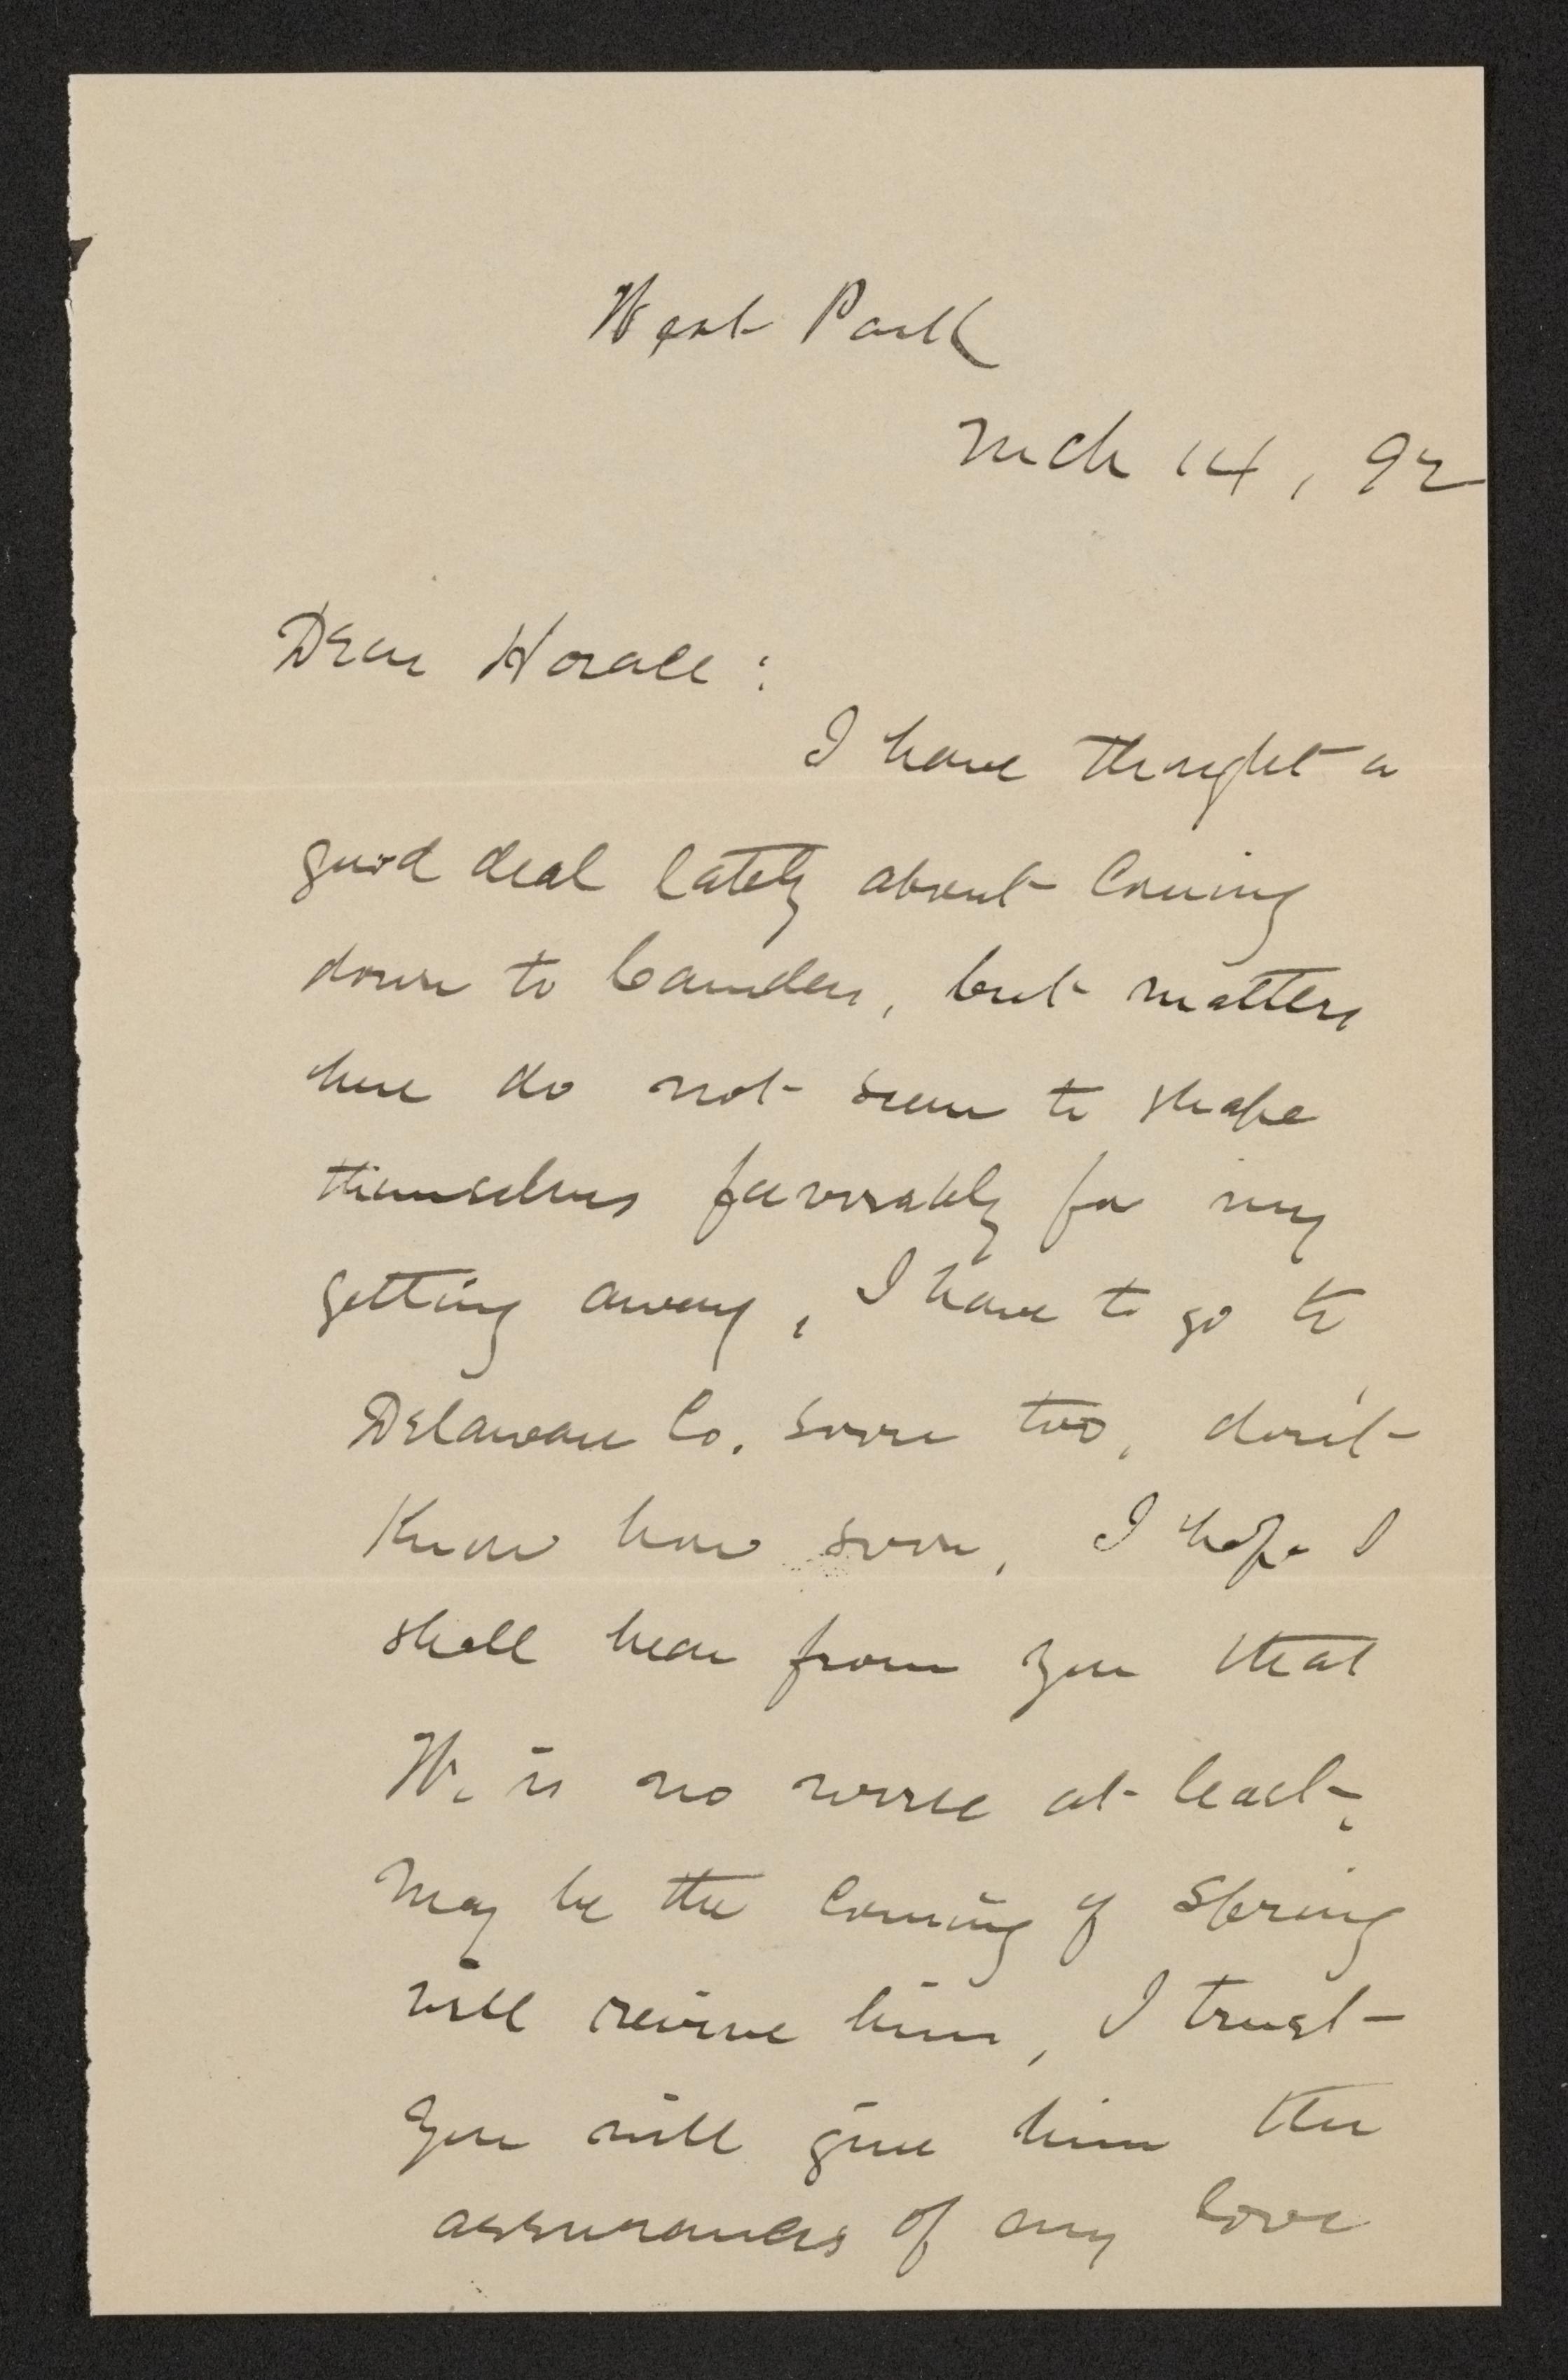 West Park
Mch 14, 92
Dear Horace:
I have thought a
good deal lately about coming
down to Camden, but matters
here do not seem to shape
themselves favorably for my
getting away, I have to go to
Delaware Co. soon too, don't
Know how soon, I hope I
shall hear from you that
W. is no worse at least,
May be the coming of Spring
will revive him, I trust
you will give him the
assurances of my love